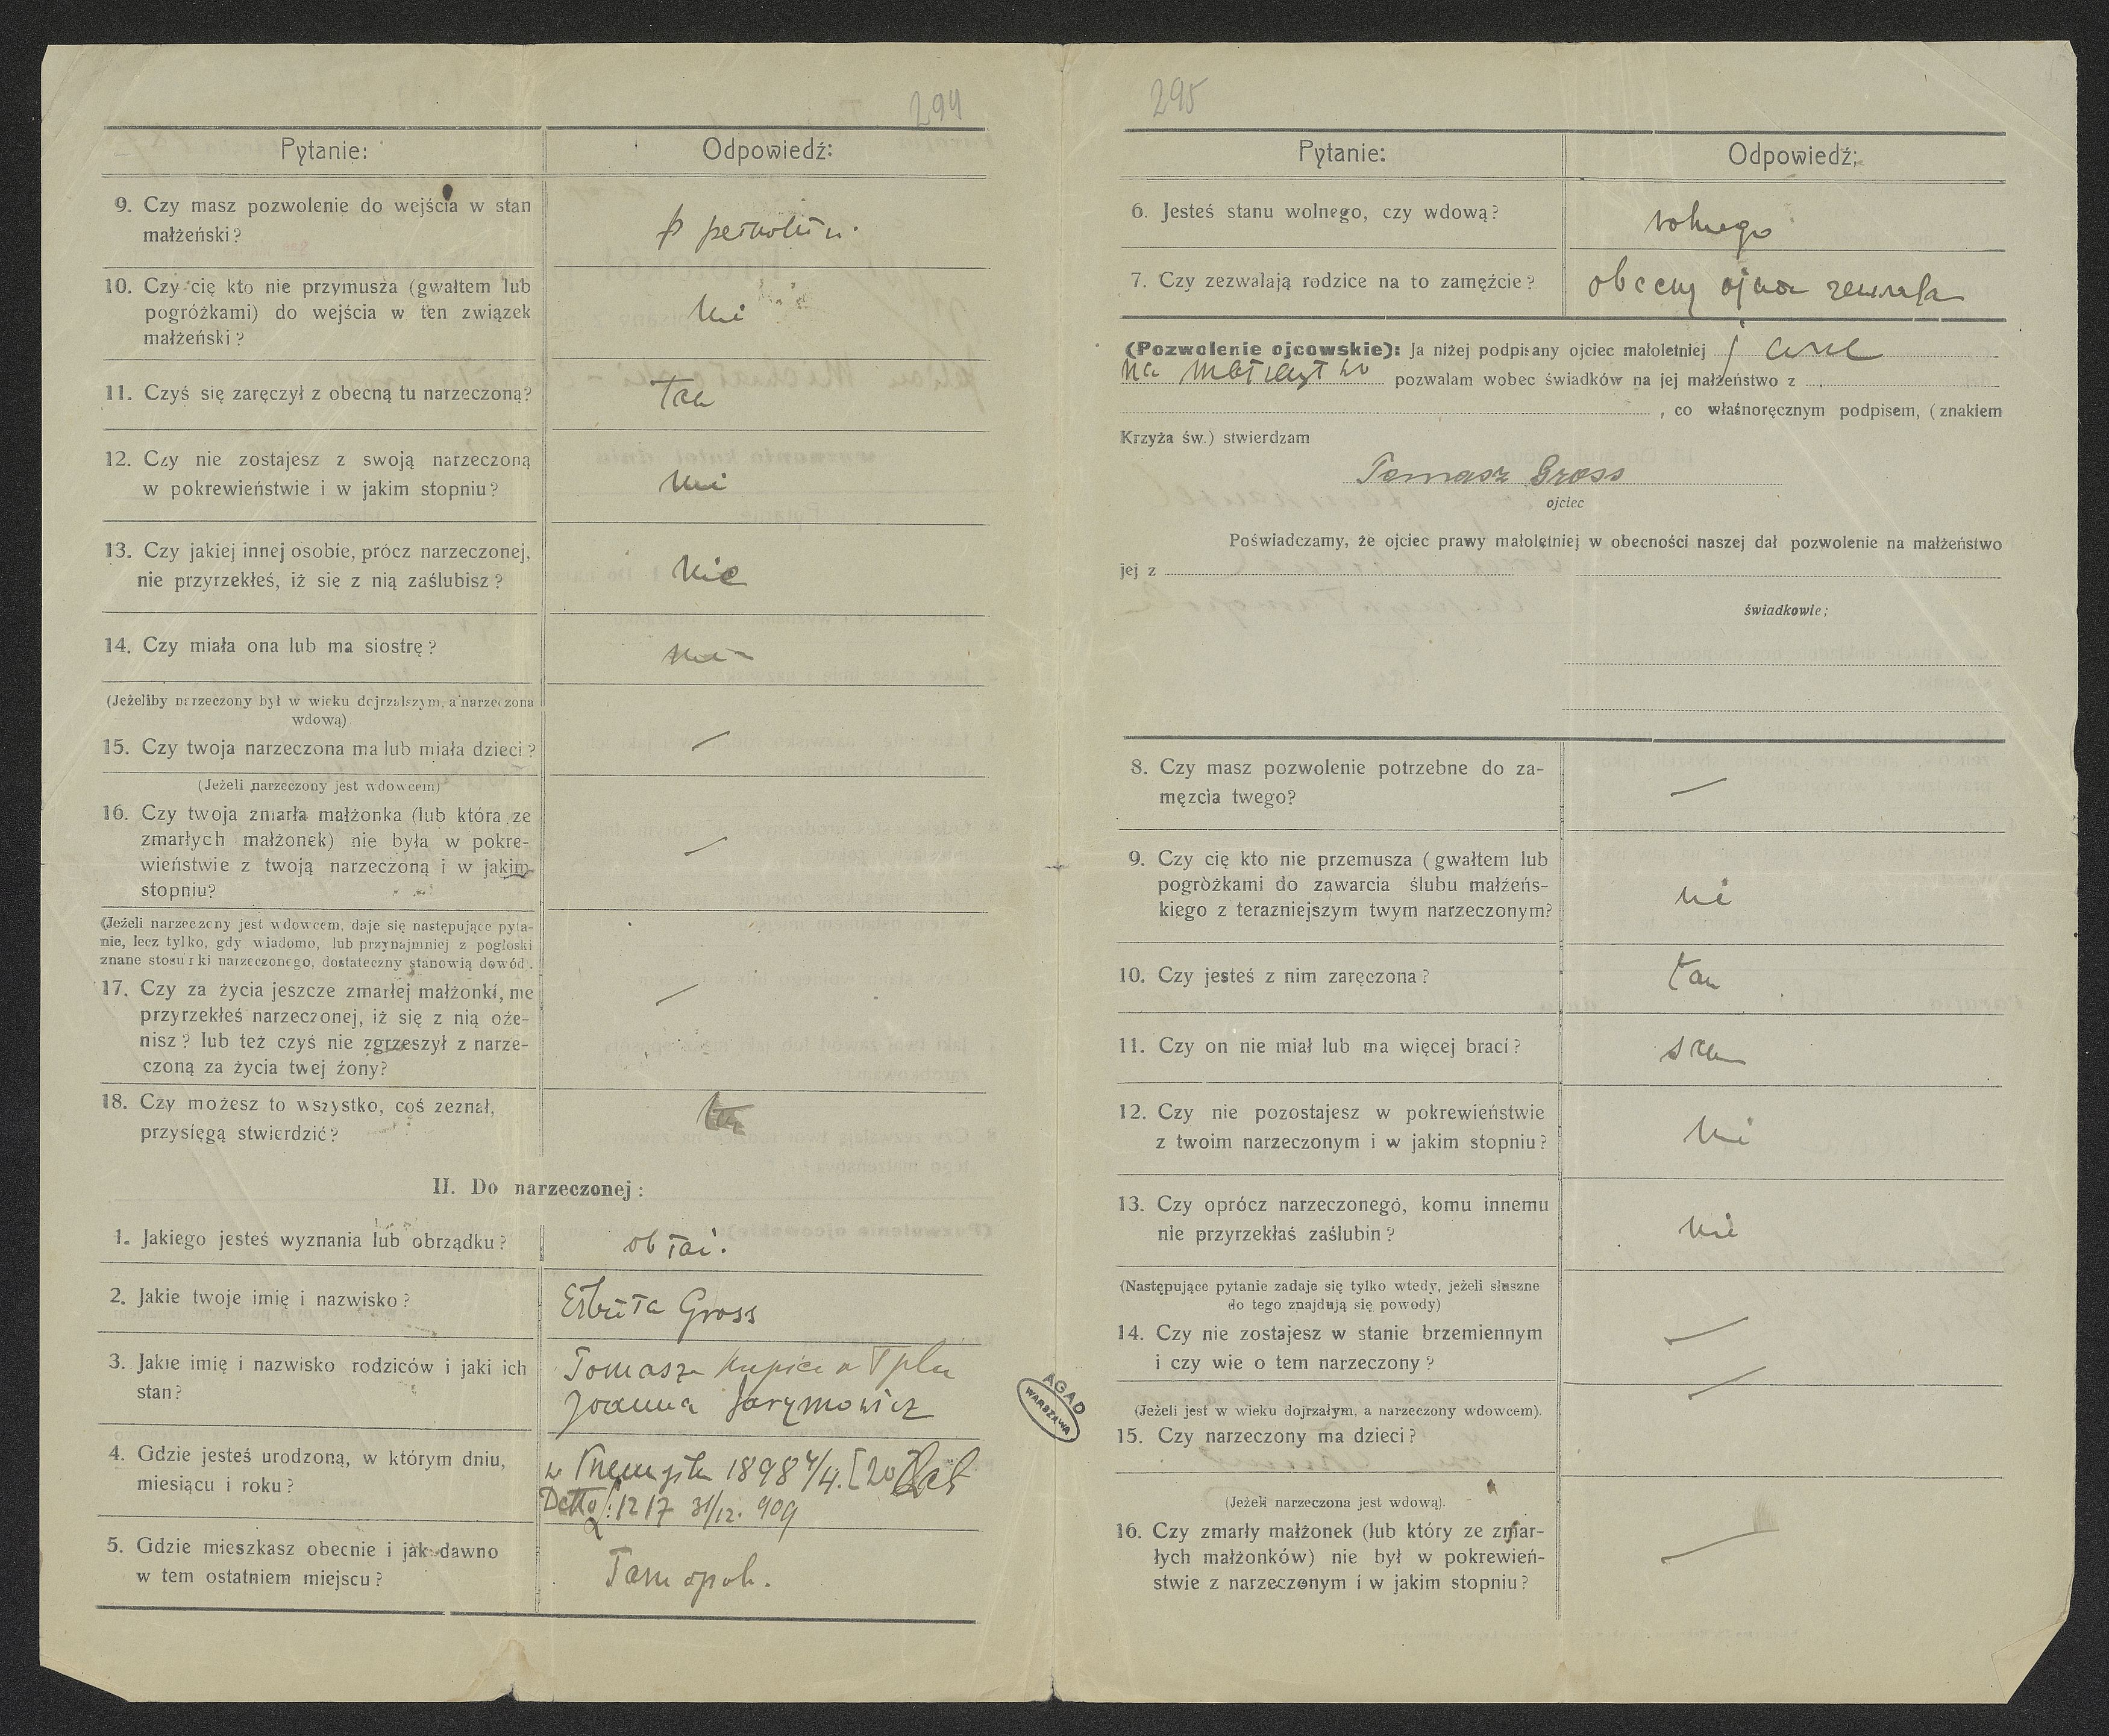 294
Pytanie:
Odpowiedź:
9. Czy masz pozwolenie do wejścia w stan
małżeński?
10. Czy cię kto nie przymusza (gwałtem lub
pogróżkami) do wejścia w ten związek
małżeński?
nie
11. Czyś się zaręczył z obecną tu narzeczoną?
tak
12. Czy nie zostajesz z swoją narzeczoną
w pokrewieństwie i w jakim stopniu?
nie
13. Czy jakiej innej osobie, prócz narzeczonej,
nie przyrzekłeś, iż się z nią zaślubisz?
nie
14. Czy miała ona lub ma siostrę?
(Jeżeliby narzeczony był w wieku dojrzalszym, a narzeczona
wdową)
15. Czy twoja narzeczona ma lub miała dzieci?
—
(Jeżeli narzeczony jest wdowcem)
16. Czy twoja zmarła małżonka (lub która ze
zmarłych małżonek) nie była w pokre-
wieństwie z twoją narzeczoną i w jakim
stopniu?
—
(Jeżeli narzeczony jest wdowcem, daje się następujące pyta-
nie, lecz tylko, gdy wiadomo, lub przynajmniej z pogłoski
znane stosunki narzeczonego, dostateczny stanowią dowód.
17. Czy za życia jeszcze zmarłej małżonki, nie
przyrzekłeś narzeczonej, iż się z nią oże-
nisz? lub też czyś nie zgrzeszył z narze-
czoną za życia twej żony?
—
18. Czy możesz to wszystko, coś zeznał,
przysięgą stwierdzić?
tak
II. Do narzeczonej:
1. Jakiego jesteś wyznania lub obrządku?
ob łać.
2. Jakie twoje imię i nazwisko?
Elżbieta Gross
3. Jakie imię i nazwisko rodziców i jaki ich
stan?
Tomasza
Joanna Jarymowicz
4. Gdzie jesteś urodzoną, w którym dniu,
miesiącu i roku?
w Przemyślu 1898 4/4. [20
1217 31/12. 909
5. Gdzie mieszkasz obecnie i jak dawno
w tem ostatniem miejscu?
Tarnopol.
AGAD
WARSZAWA
295
Pytanie:
Odpowiedź;
6. Jesteś stanu wolnego, czy wdową?
wolnego
7. Czy zezwalają rodzice na to zamęźcie?
obecny ojciec zezwala
(Pozwolenie ojcowskie): Ja niżej podpisany ojciec małoletniej
na małżeństwo pozwalam wobec świadków na jej małżeństwo z
, co właśnoręcznym podpisem, (znakiem
Krzyża św.) stwierdzam
Tomasz Gross
ojciec
Poświadczamy, że ojciec prawy małoletniej w obecności naszej dał pozwolenie na małżeństwo
jej z
świadkowie;
8. Czy masz pozwolenie potrzebne do za-
męzcia twego?
—
9. Czy cię kto nie przemusza (gwałtem lub
pogròżkami do zawarcia ślubu małżeńs-
kiego z terazniejszym twym narzeczonym?
nie
10. Czy jesteś z nim zaręczona?
tak
11. Czy on nie miał lub ma więcej braci?
sam
12. Czy nie pozostajesz w pokrewieństwie
z twoim narzeczonym i w jakim stopniu?
nie
13. Czy oprócz narzeczonegó, komu innemu
nie przyrzekłaś zaślubin?
nie
(Następujące pytanie zadaje się tylko wtedy, jeżeli słuszne
do tego znajdują się powody)
14. Czy nie zostajesz w stanie brzemiennym
i czy wie o tem narzeczony?
—
—
(Jeżeli jest w wieku dojrzałym, a narzeczony wdowcem).
15. Czy narzeczony ma dzieci?
(Jeżeli narzeczona jest wdową).
16. Czy zmarły małżonek (lub który ze zmar-
łych małżonków) nie był w pokrewień-
stwie z narzeczonym i w jakim stopniu?
—